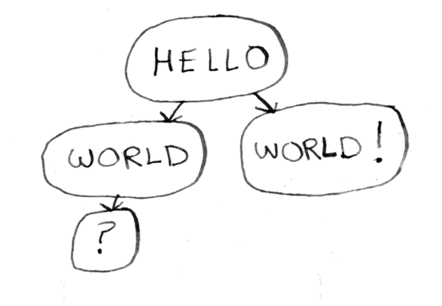 HELLO
WORLD
WORLD!
?